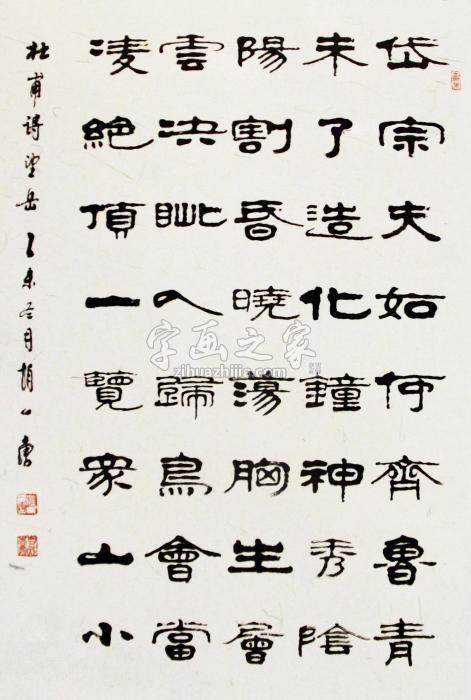 岱宗夫如何齊魯青
未了造化鐘神秀陰
陽割昏曉蕩胸生層
雲決眦入歸鳥會當
凌絕頂一覽眾山小
杜甫詩望岳 乙未冬月胡
字画之家
zihuazhijia.com